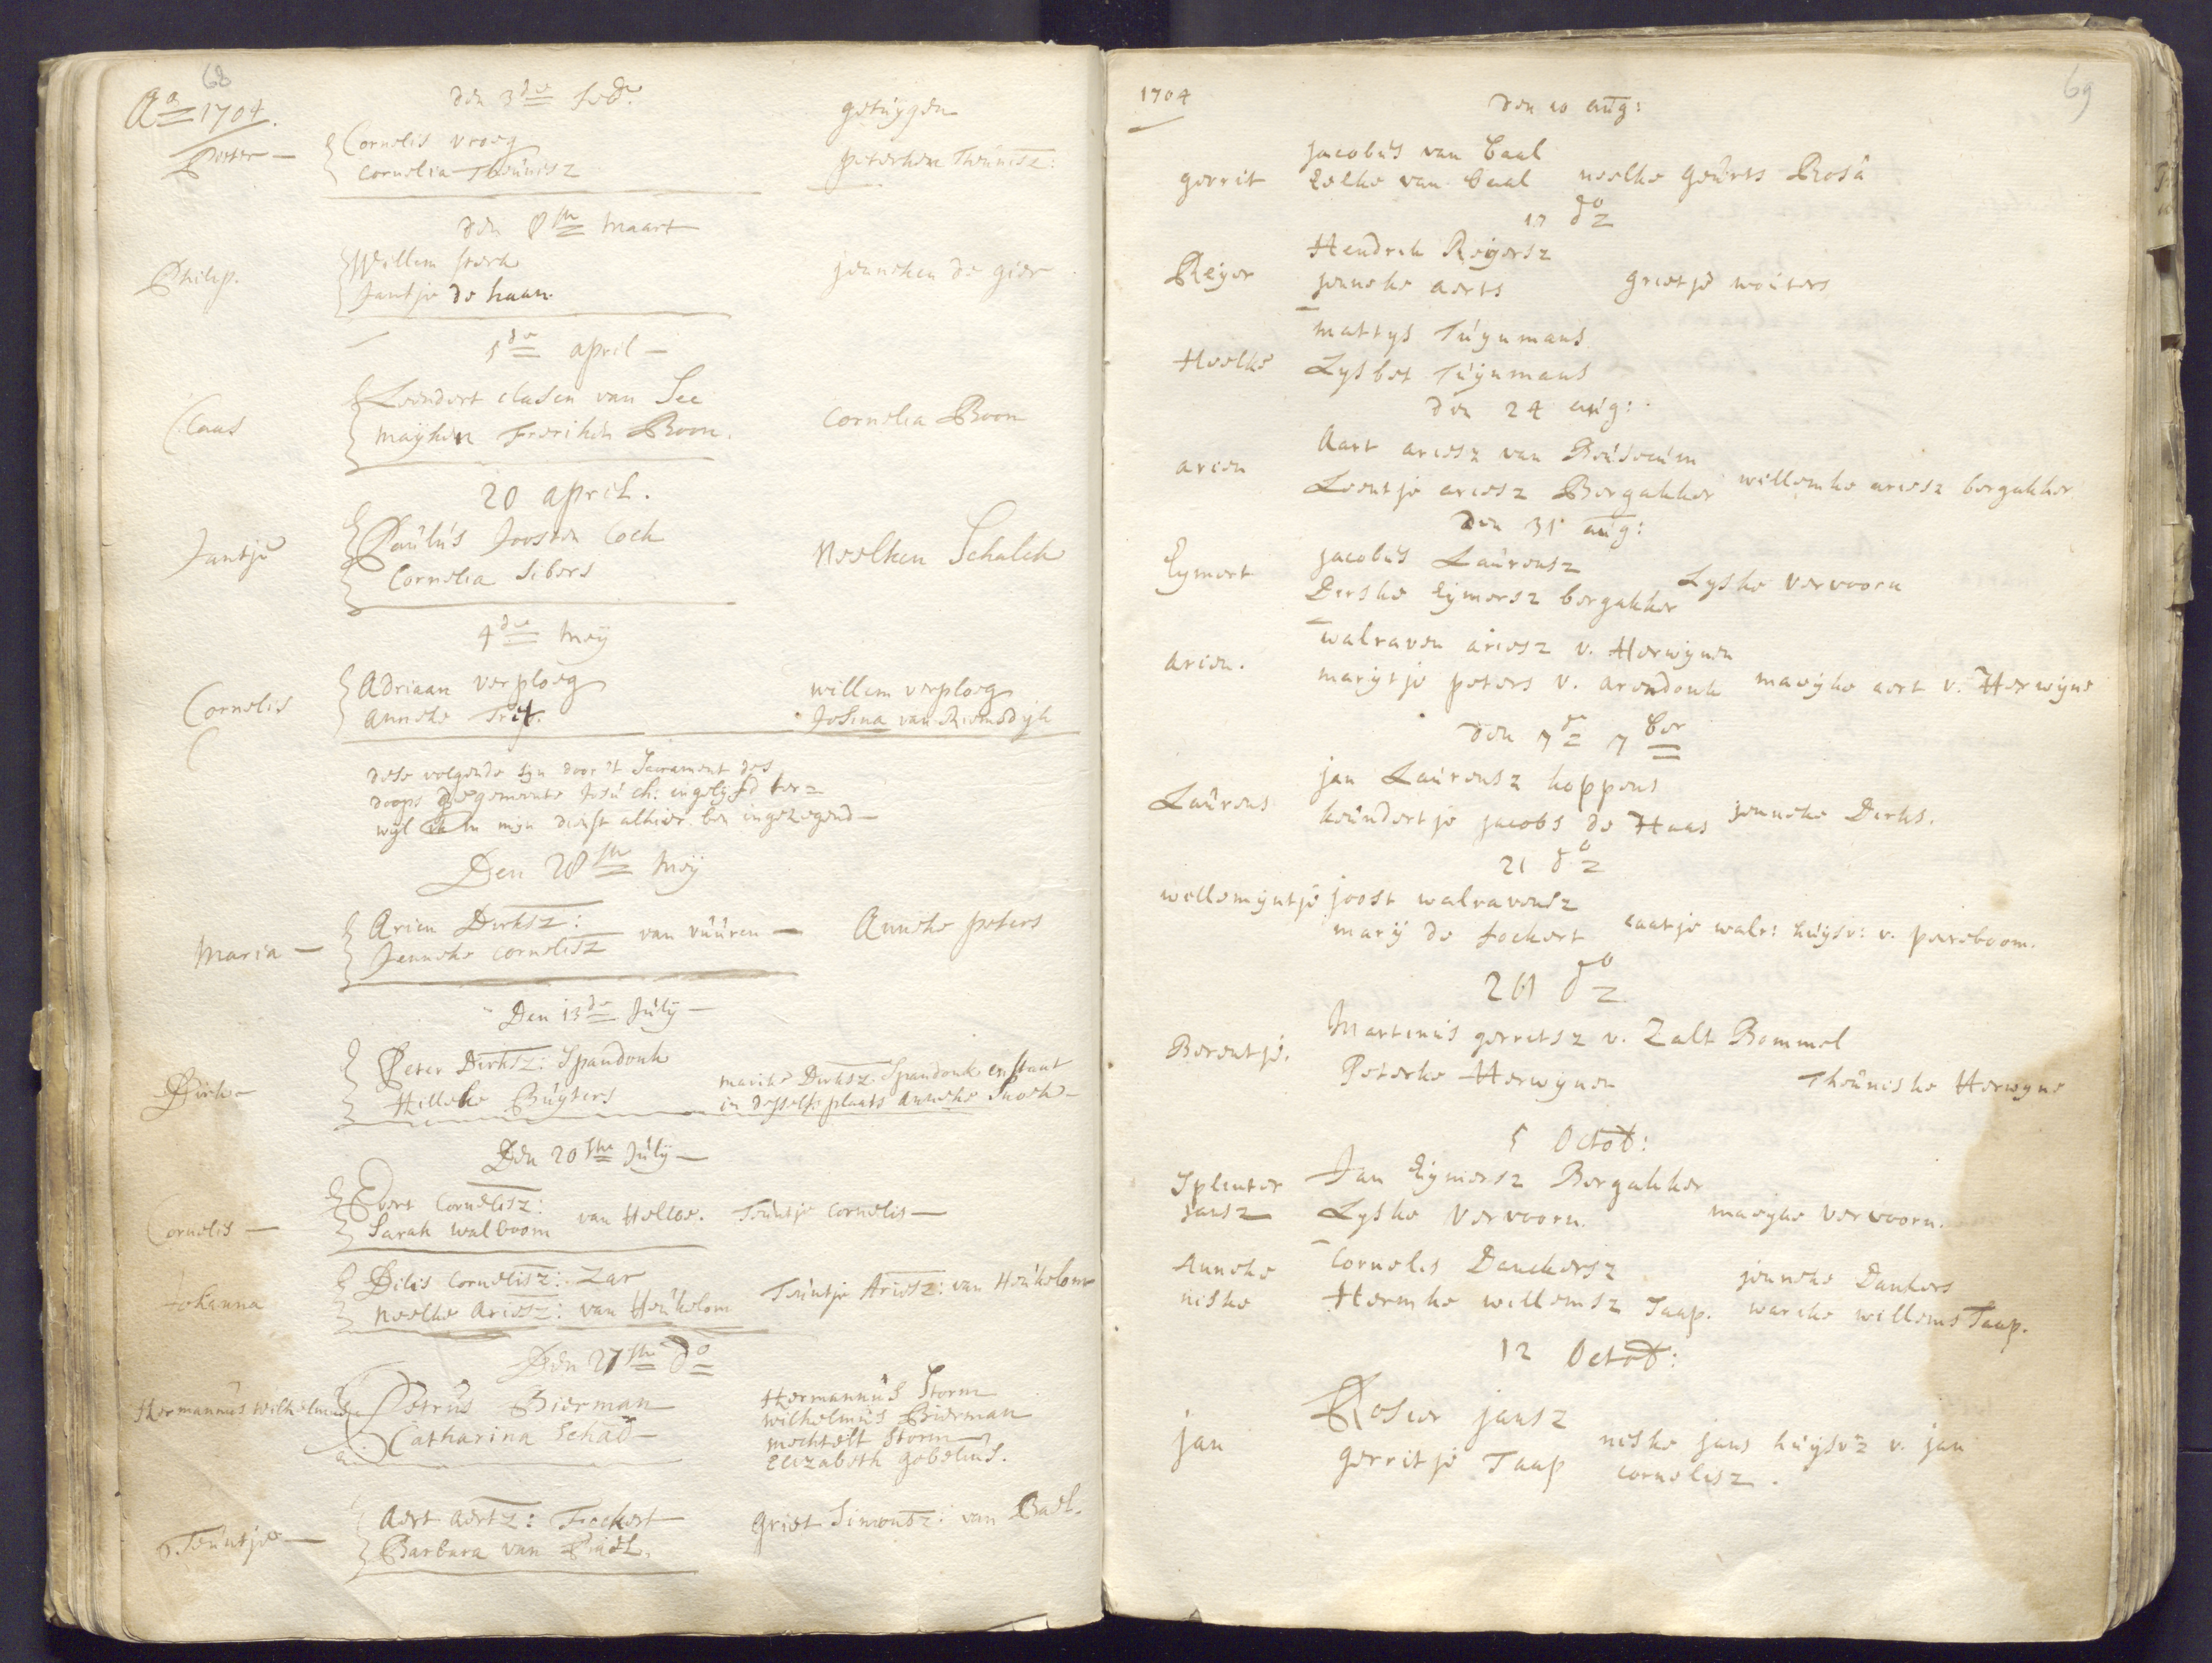 68
Ao 1704.
den 3de feb:
getuygen
Pieter —
Cornelis vroeg
Cornelia Theunisz
peterken Theunisz:
den 8ste maart
Philip.
Willem sterk
Jantje de haan
jenneken de gier
5de april —
Claas
Leendert clasen van See
mayken Frerikin Boon.
Cornelia Boon
20 april.
Jantje
Paulus Joosten Cock
Cornelia Sibers
Neelken Schalck
4de mey
Cornelis
Adriaan verploeg
anneke
willem verploeg
Josina van Riemsdijk
dese volgende syn door 't Sacrament des
doops de gemeente Jesu Ch: ingelyfd ter=
wyl ik in mijn dienst alhier ben ingezegend —
Den 28ste mey
Maria —
Arien Dirksz:
Jenneke cornelisz van vuuren —
Anneke peters
Den 13de July —
Dirk —
Peter Dirksz: Spandonk
Hilleke Buyters
marike Dirksz. Spandonk en stant
in desselfs plaats Anneke Snoek —
Den 20ste July —
Cornelis —
Evert Cornelisz:
Sarah walboom van Helloe.
Teuntje Cornelis —
Johanna
Dilis Cornelisz: Zar
Neelke Ariesz: van Heukelom
Teuntje Ariesz: van Heukelom
Den 27ste do
Hermannus Wilhelmus
Petrus Bierman
Catharina Schad —
Hermannus Storm
wilhelmus Bierman
mechtelt Storm
Elizabeth gobelius.
Teuntje —
Aert Aertz: Fockert
Barbara van Bael.
Griet Simonsz: van Bael.
69
1704
den 10 aug:
gerrit
jacobus van Caal
Eelke van Caal
neelke geurts Rosa
17 do
Reyer
Hendrik Reyersz
jenneke aerts
grietje wouters
Heelke
mattys Tuynmans
Lysbet Tuynmans
den 24 aug:
arien
Aart ariesz van Beusecum
Leentje ariesz Bergakker
willemke ariesz bergakker
den 31 aug:
Eymert
jacobus Laurensz
Dirske Eymersz bergakker
Lyske Vervoorn
arien.
walraven ariesz v. Herwynen
marytje peters v. arendonk
mayke aert v. Herwyne
den 7de 7ber
Laurens
jan Laurensz hoppens
leundertje jacobs de Haas
jenneke Dirks.
21 do
willemyntje
joost walravensz
mary de fockert
caatje walr: huysv: v. pereboom.
28 do
Berentje.
Martinus gerritsz v. Zalt Bommel
Peterke Herwynen
Theuniske Herwyne
5 Octob:
Splinter
jansz
Jan Eymersz Bergakker
Lyske Vervoorn.
mayke Vervoorn.
Anneke
niske
Cornelis Danckersz
Hermke willemsz Taap.
jenneke Dankers
warike willems Taap.
12 Octob:
jan
Rosier jansz
gerritje Taap
niske jans huysvz v. jan
cornelisz.